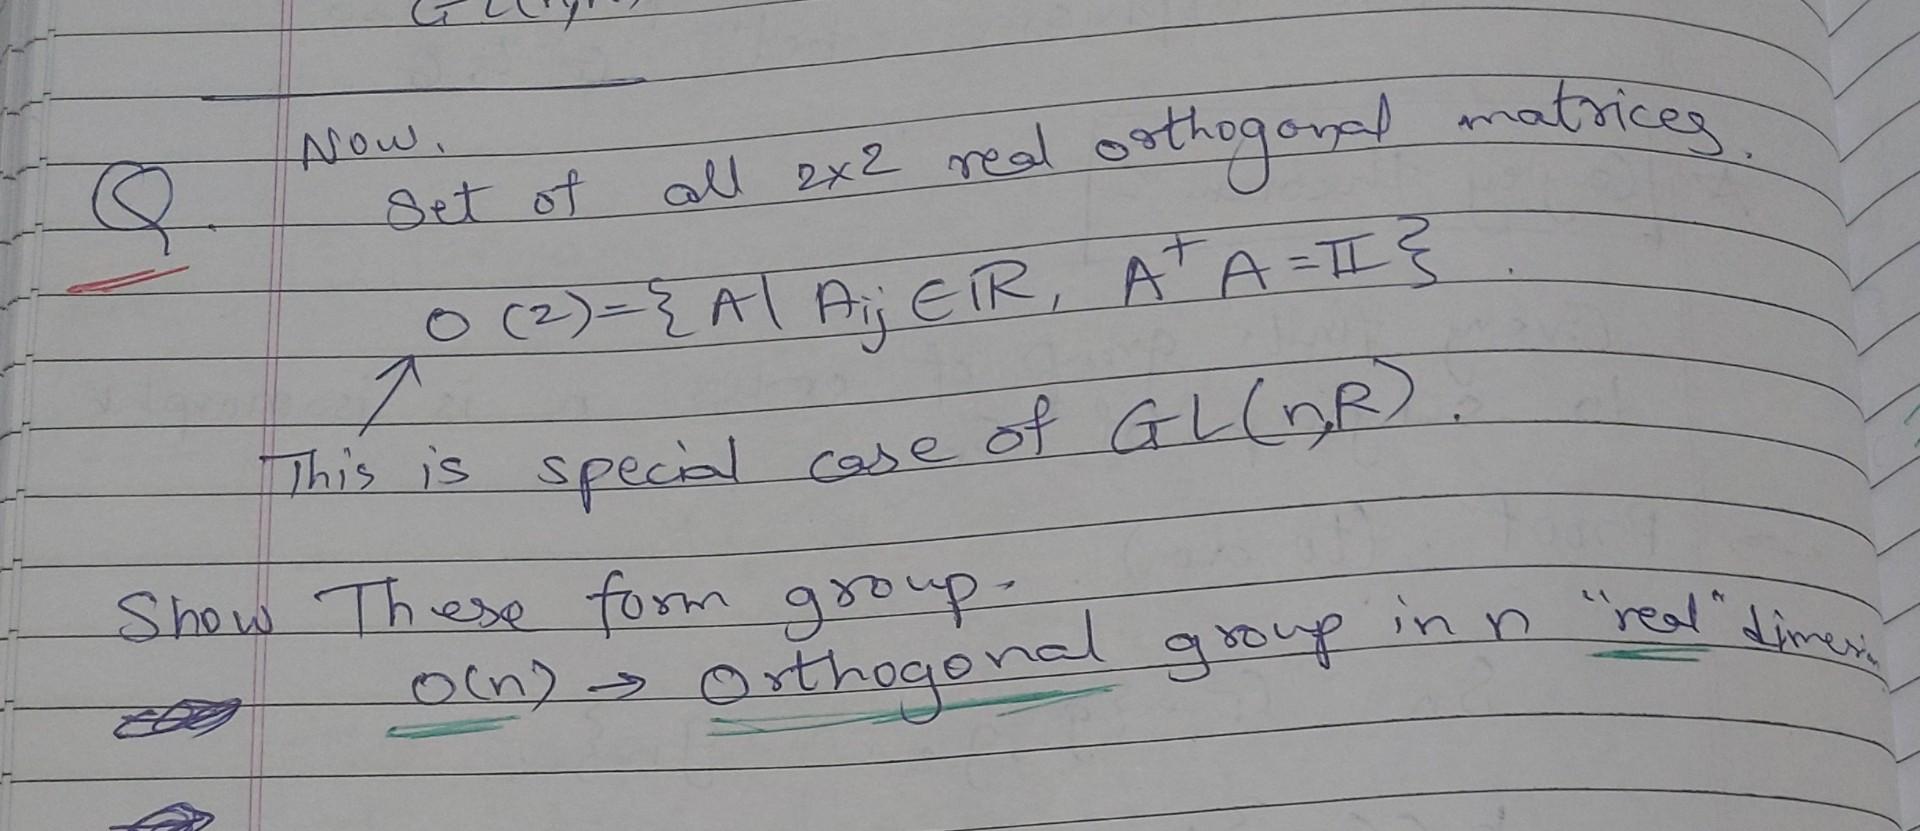 Now.
Q. Set of all 2x2 real orthogonal matrices.
O(2)={A| Aij ∈ ℝ, A^+ A = 𝕀}.
This is special case of GL(n,R).
Show These form group.
O(n) → Orthogonal group in n "real"